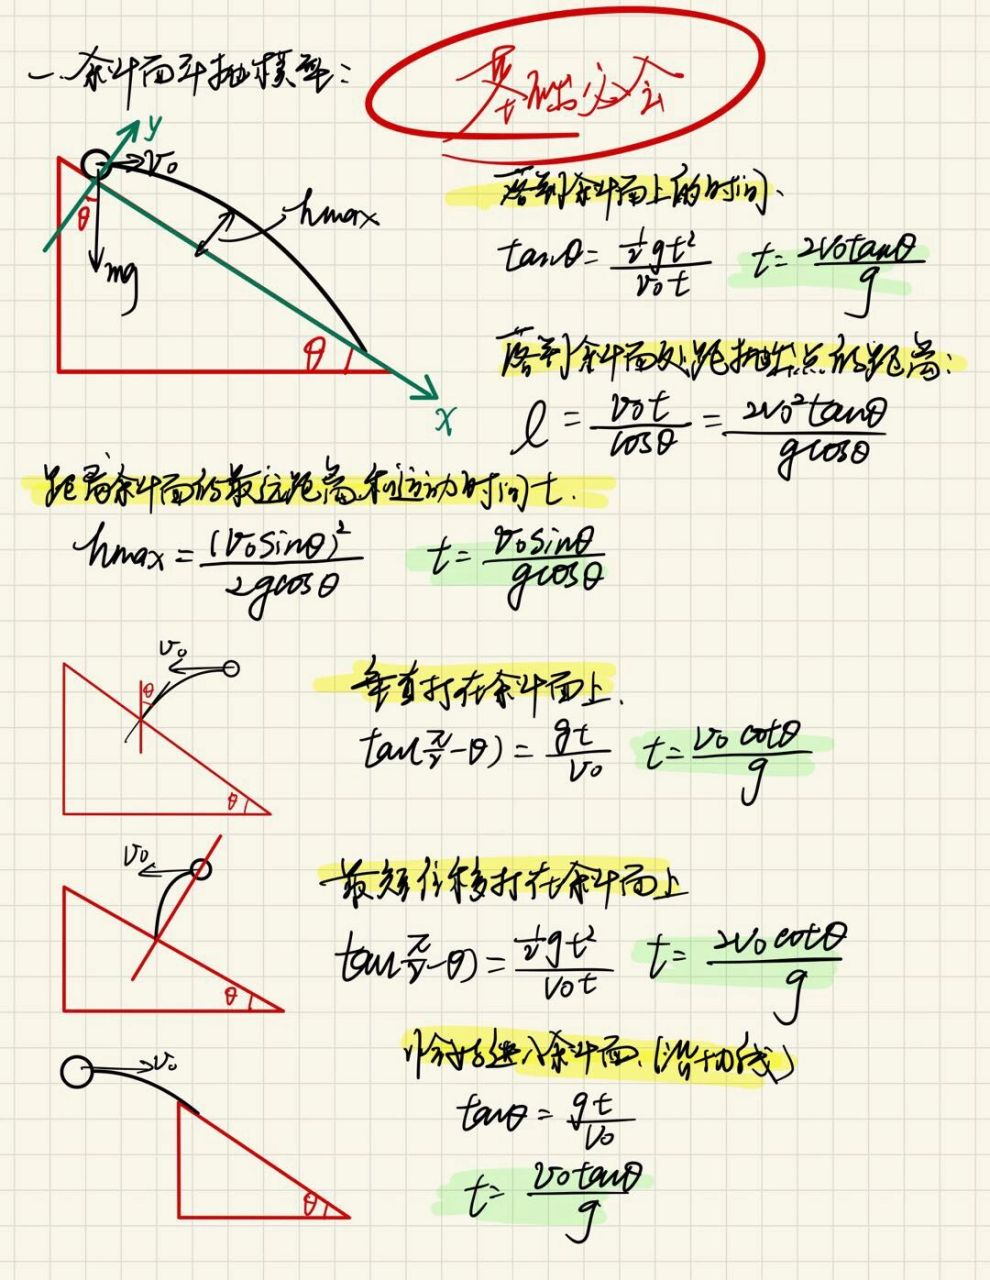 一.斜面平抛模型:
基础必会
y
v₀
θ
hmax
mg
θ
x
落到斜面上的时间.
tanθ = ½gt² / v₀t    t = 2v₀tanθ / g
落到斜面处距抛出点的距离:
l = v₀t / cosθ = 2v₀²tanθ / gcosθ
距离斜面的最远距离和运动时间t.
hmax = (v₀sinθ)² / 2gcosθ    t = v₀sinθ / gcosθ
v₀
θ
θ
垂直打在斜面上.
tan(π/2-θ) = gt / v₀    t = v₀cotθ / g
v₀
θ
最短位移打在斜面上
tan(π/2-θ) = ½gt² / v₀t    t = 2v₀cotθ / g
v₀
θ
恰好进入斜面.(沿切线)
tanθ = gt / v₀
t = v₀tanθ / g